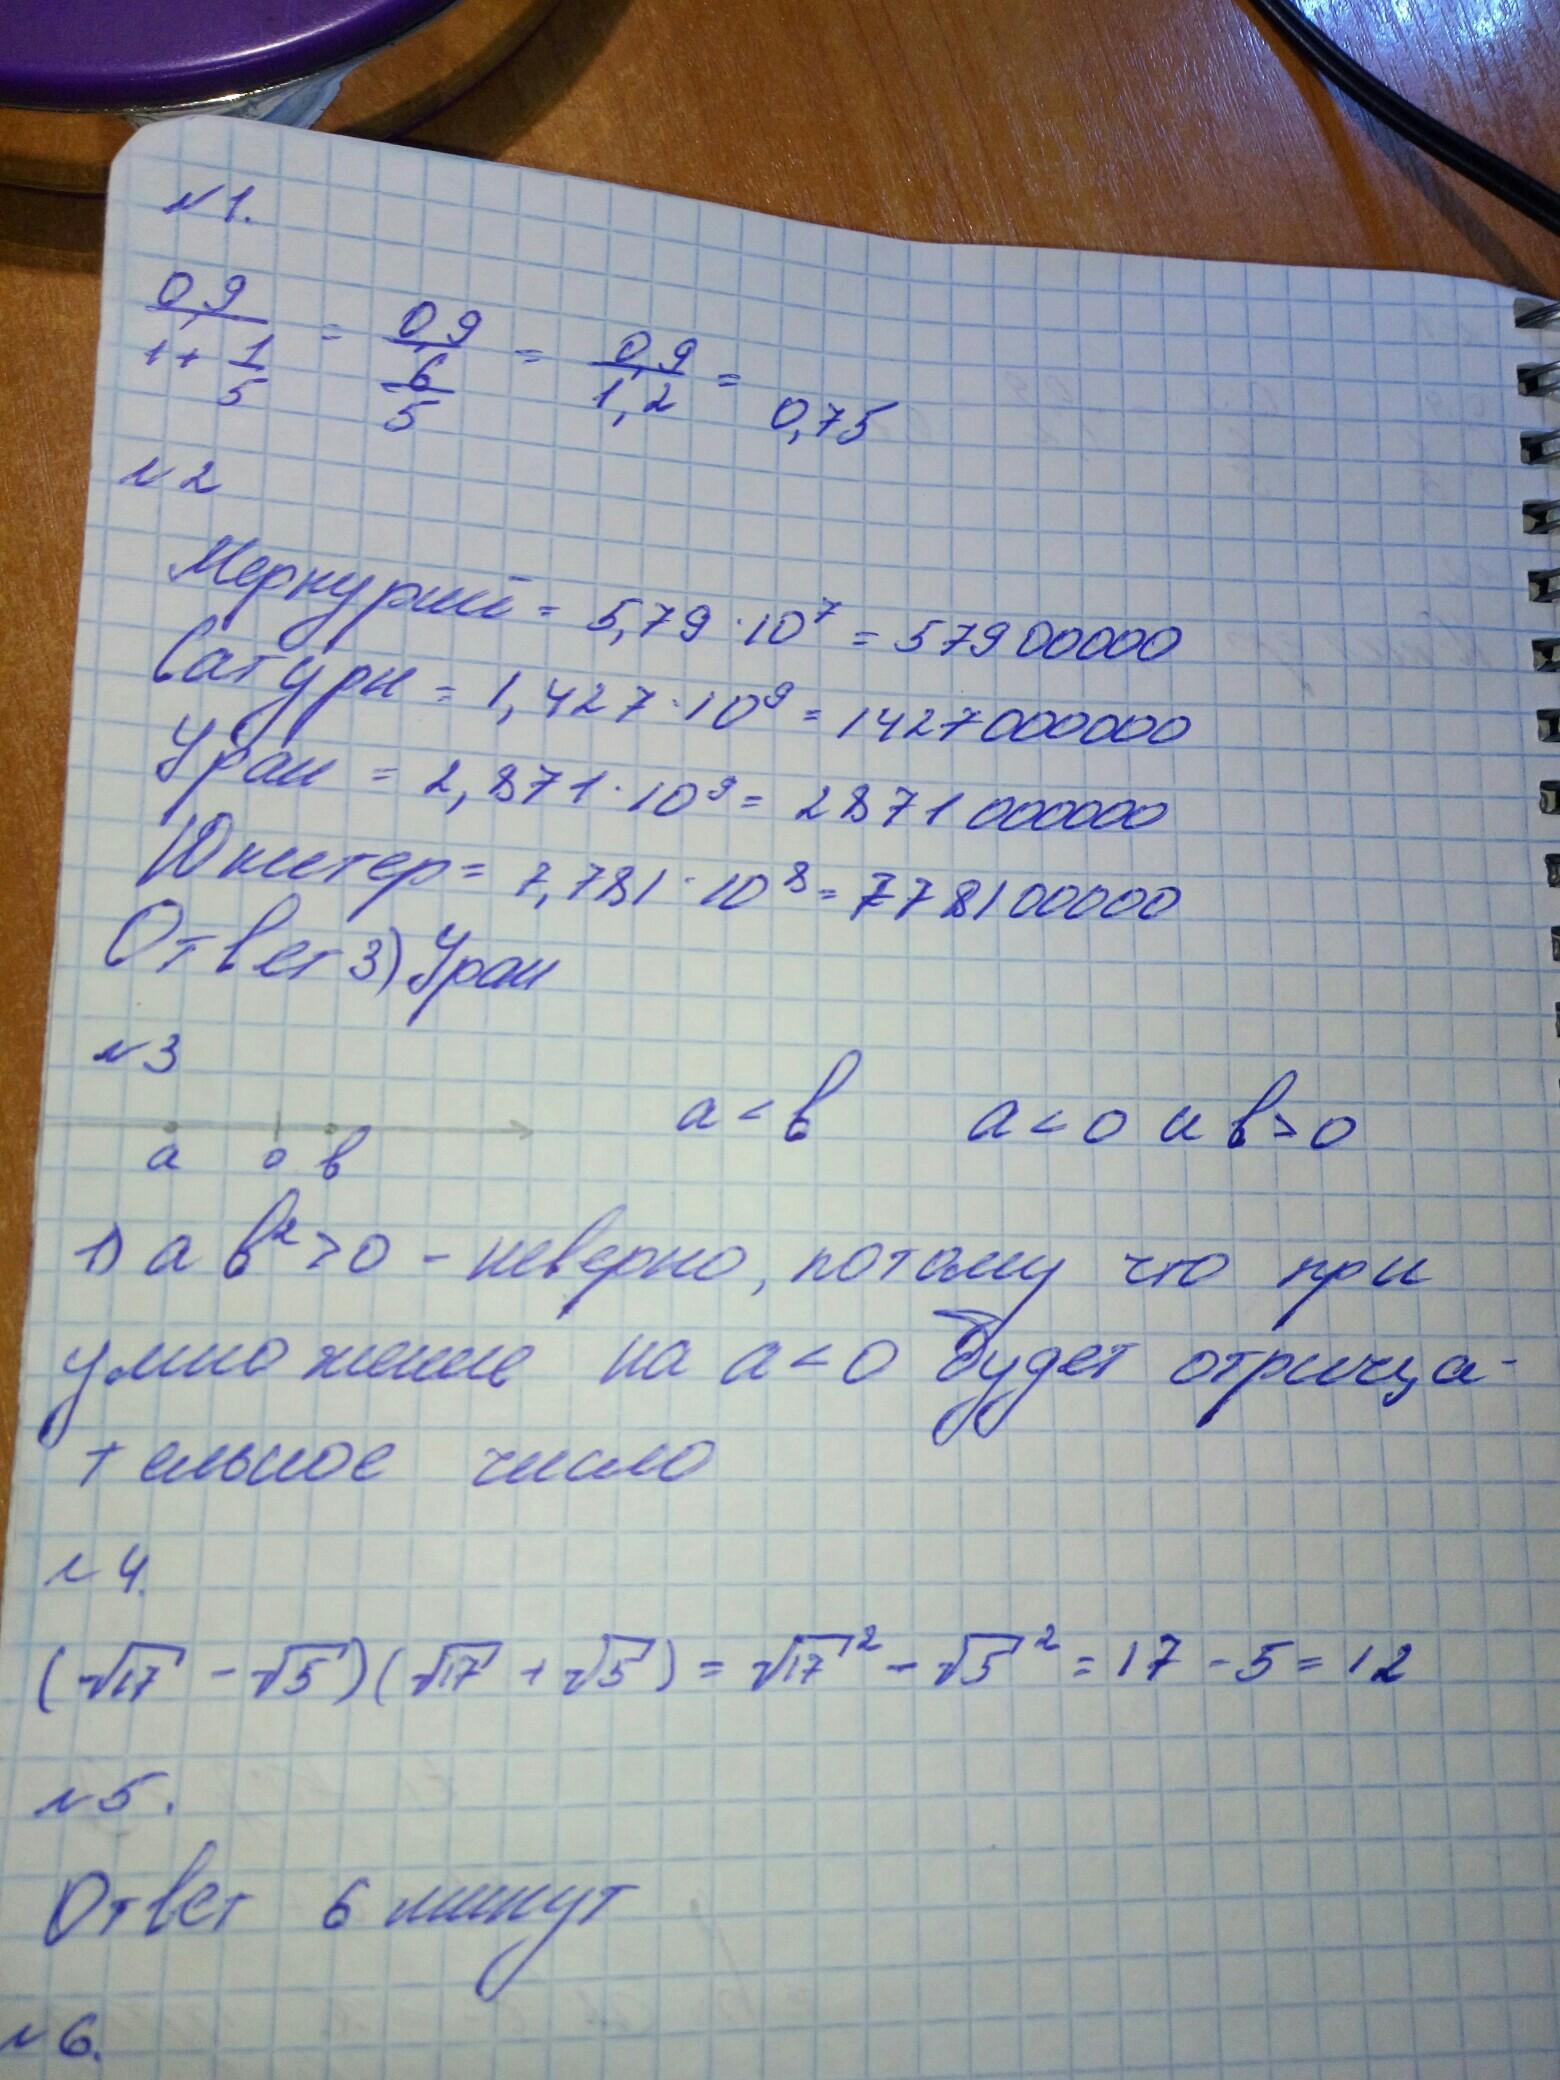 №1.
0,9/(1+1/5) = 0,9/(6/5) = 0,9/1,2 = 0,75
№2
Меркурий = 5,79·10⁷ = 57900000
Сатурн = 1,427·10⁹ = 1427000000
Уран = 2,871·10⁹ = 2871000000
Юпитер = 7,781·10⁸ = 778100000
Ответ 3) Уран
№3
a 0 b
a < b a < 0 и b > 0
1) a b² > 0 - неверно, потому что при
умножение на a < 0 будет отрица-
тельное число
№4.
(√17 - √5)(√17 + √5) = √17² - √5² = 17 - 5 = 12
№5.
Ответ 6 минут
№6.